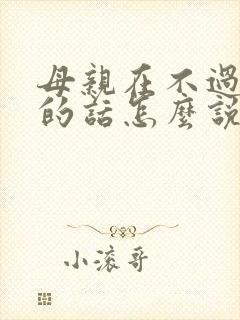 母親在不過
的話怎麼説
小滾哥